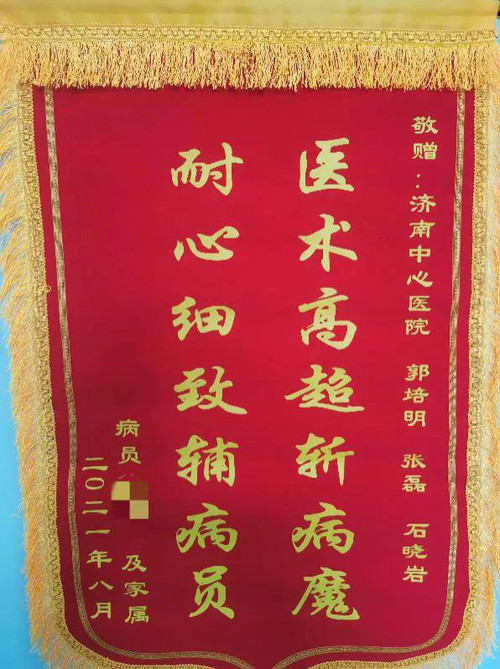 敬赠：济南中心医院 郭培明 张磊 石晓岩
医术高超斩病魔
耐心细致辅病员
病员 及家属
二〇二一年八月